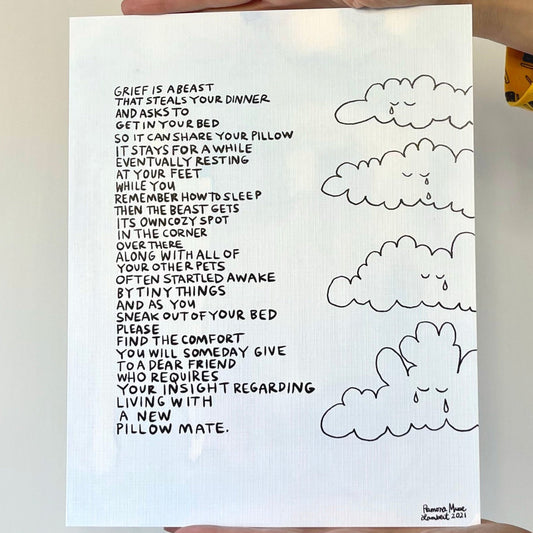 GRIEF IS A BEAST
THAT STEALS YOUR DINNER
AND ASKS TO
GET IN YOUR BED
SO IT CAN SHARE YOUR PILLOW
IT STAYS FOR A WHILE
EVENTUALLY RESTING
AT YOUR FEET
WHILE YOU
REMEMBER HOW TO SLEEP
THEN THE BEAST GETS
ITS OWN COZY SPOT
IN THE CORNER
OVER THERE
ALONG WITH ALL OF
YOUR OTHER PETS
OFTEN STARTLED AWAKE
BY TINY THINGS
AND AS YOU
SNEAK OUT OF YOUR BED
PLEASE
FIND THE COMFORT
YOU WILL SOMEDAY GIVE
TO A DEAR FRIEND
WHO REQUIRES
YOUR INSIGHT REGARDING
LIVING WITH
A NEW
PILLOW MATE.
2021